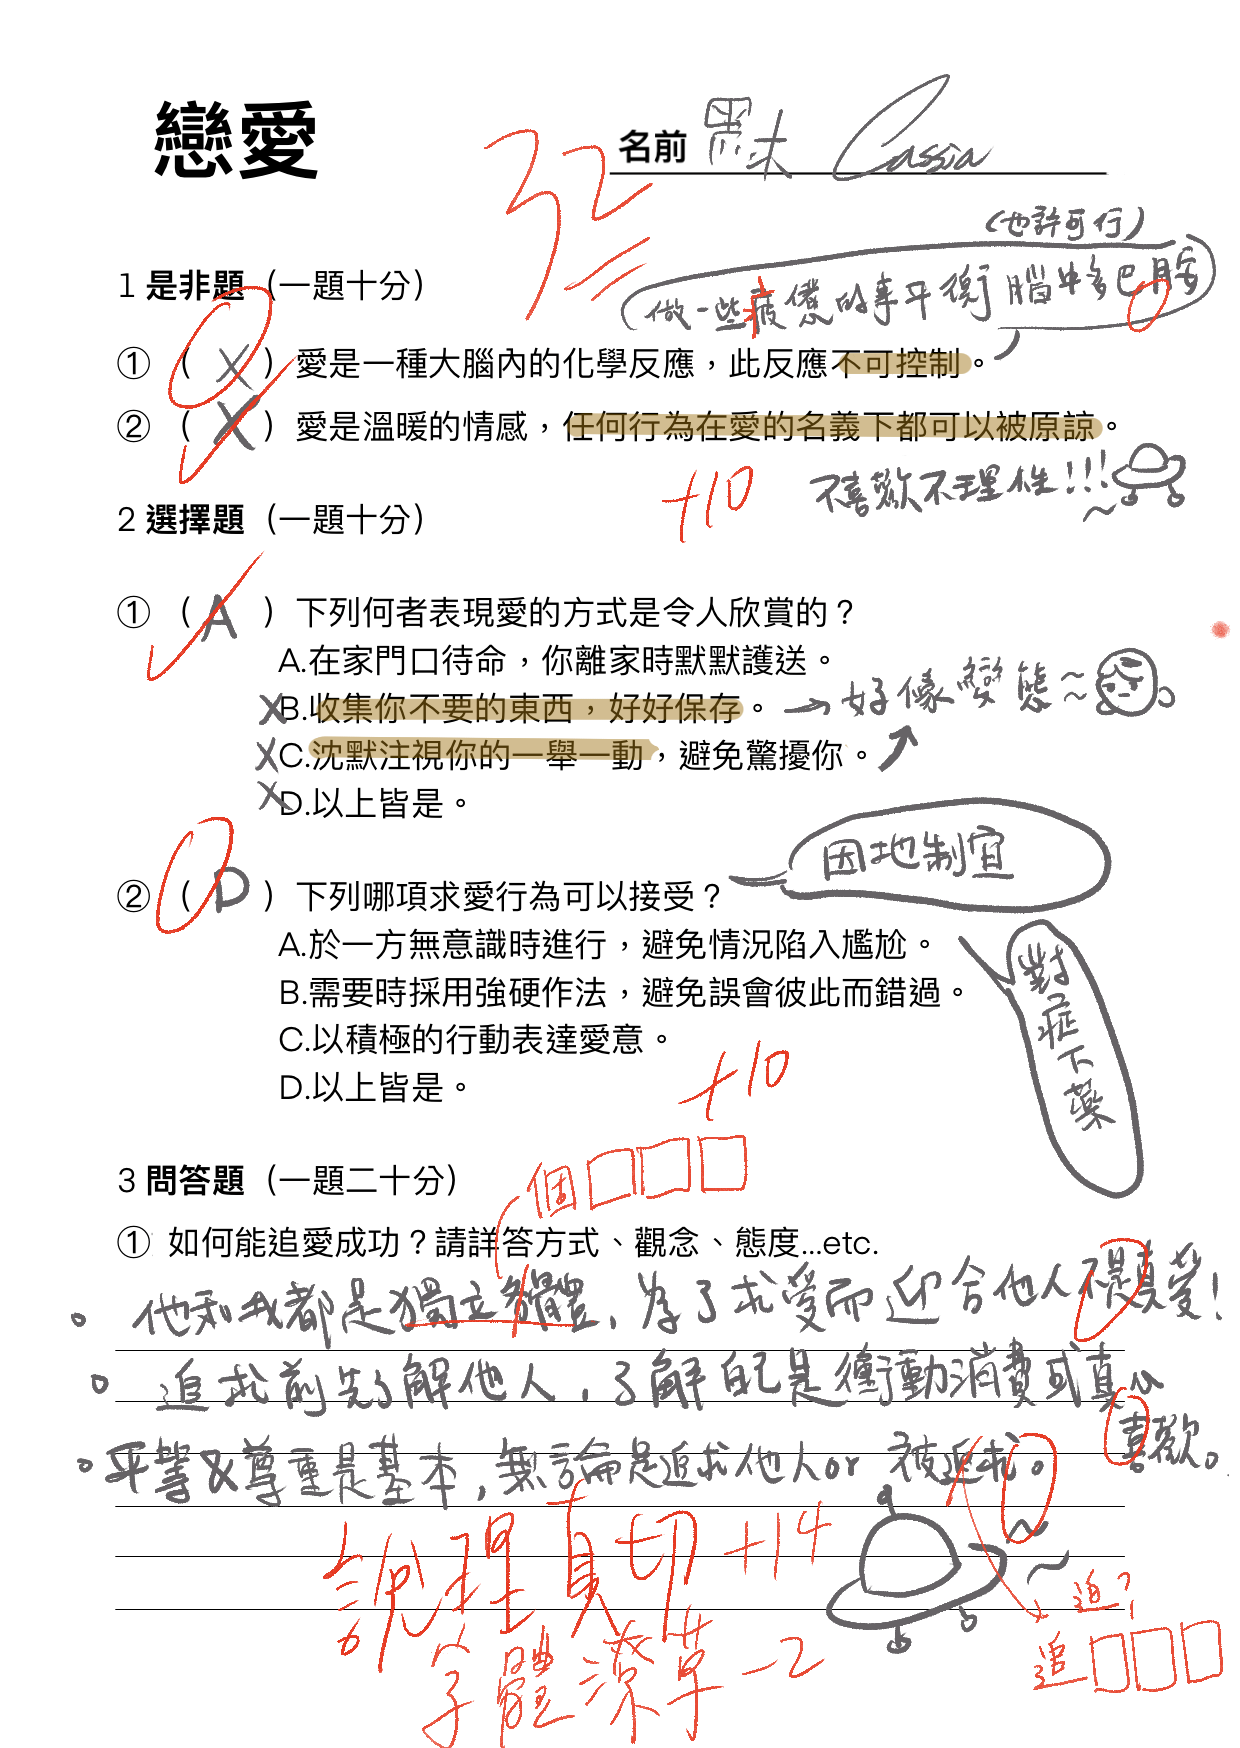 戀愛
名前 黑木 Cassia
32
(也許可行)
1 是非題（一題十分）
做一些疲憊的事平衡腦中多巴胺
①（ X ）愛是一種大腦內的化學反應，此反應不可控制。
②（ X ）愛是溫暖的情感，任何行為在愛的名義下都可以被原諒。
+10
不喜歡不理性!!!
2 選擇題（一題十分）
①（ A ）下列何者表現愛的方式是令人欣賞的？
A.在家門口待命，你離家時默默護送。
X B.收集你不要的東西，好好保存。→好像變態~~
X C.沈默注視你的一舉一動，避免驚擾你。
X D.以上皆是。
因地制宜
②（ D ）下列哪項求愛行為可以接受？
A.於一方無意識時進行，避免情況陷入尷尬。
B.需要時採用強硬作法，避免誤會彼此而錯過。
C.以積極的行動表達愛意。
D.以上皆是。
對症下藥
+10
3 問答題（一題二十分）
個□□□
① 如何能追愛成功？請詳答方式、觀念、態度...etc.
。他和我都是獨立個體，為了求愛而迎合他人不是真愛！
。追求前先了解他人，了解自己是衝動消費或真心
喜歡。
。平等&尊重是基本，無論是追求他人or 被追求。
說理真切 +14
字體潦草 -2
追?
追□□□